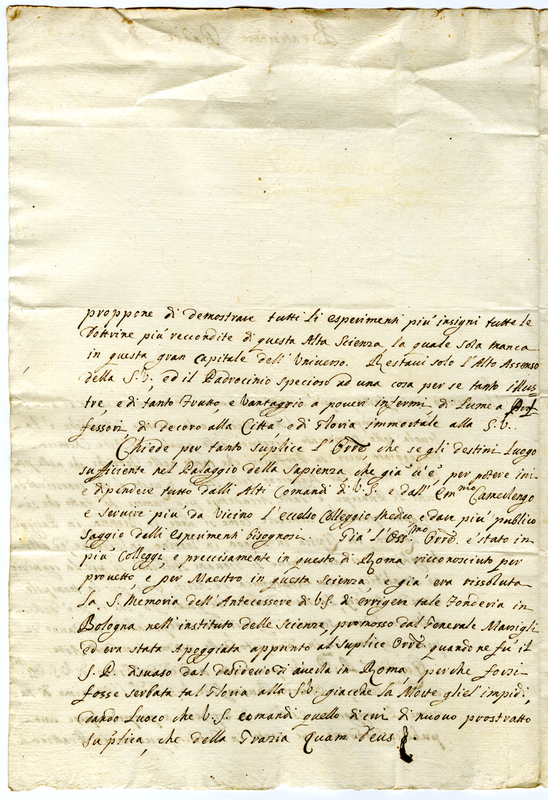 proppone di demostrare tutti li esperimenti più insigni tutte le
Dottrine più reccondite di questa Alta Scienza, la quale sola manca
in questa gran Capitale dell' Universo. Restavi solo l'Alto Assenso
della S. V., ed il Padrocinio specioso ad una cosa per se tanto illus
tre, e di tanto frutto, e Vantaggio a poveri infermi, di Lume a Prof
fessori, di decoro alla Città, e di Gloria immortale alla S. V.
Chiede per tanto Suplice l'Orre, che se gli destini Luogo
sufficiente nel Palaggio della Sapienza, che già v'è, per potere ivi
e dipendere tutto dalli Alti Comandi di V. S. e dall' Emmo Camerlengo
e Servire più da Vicino l'eccelso Colleggio Medico, e dare più publico
Saggio delli esperimenti bisognosi. Già l' Orre. è stato in
più Colleggi, e precisamente in questo di Roma riconosciuto per
provetto, e per Maestro in questa Scienza, e già era rissoluta
la S. Memoria dell'Antecessore di V. S. di errigere tale Fonderia in
Bologna nell'instituto delle Scienze, promosso dal Generale Marsigli
ed era stata Apoggiata appunto al Suplice Orre quando ne fu il
S. P. disuaso dal desiderio di averla in Roma, perche forsi
fosse Serbata tal Gloria alla S. V. giacche la Morte gliel' impidì,
dando Luoco che V. S. comandi quello di cui di nuovo prostratto
Suplica, che della Grazia quam Deus.